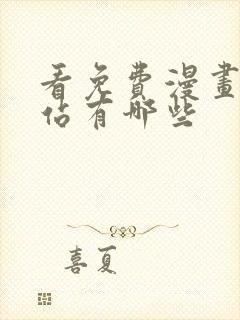 看免費漫畫
佔有哪些
喜夏